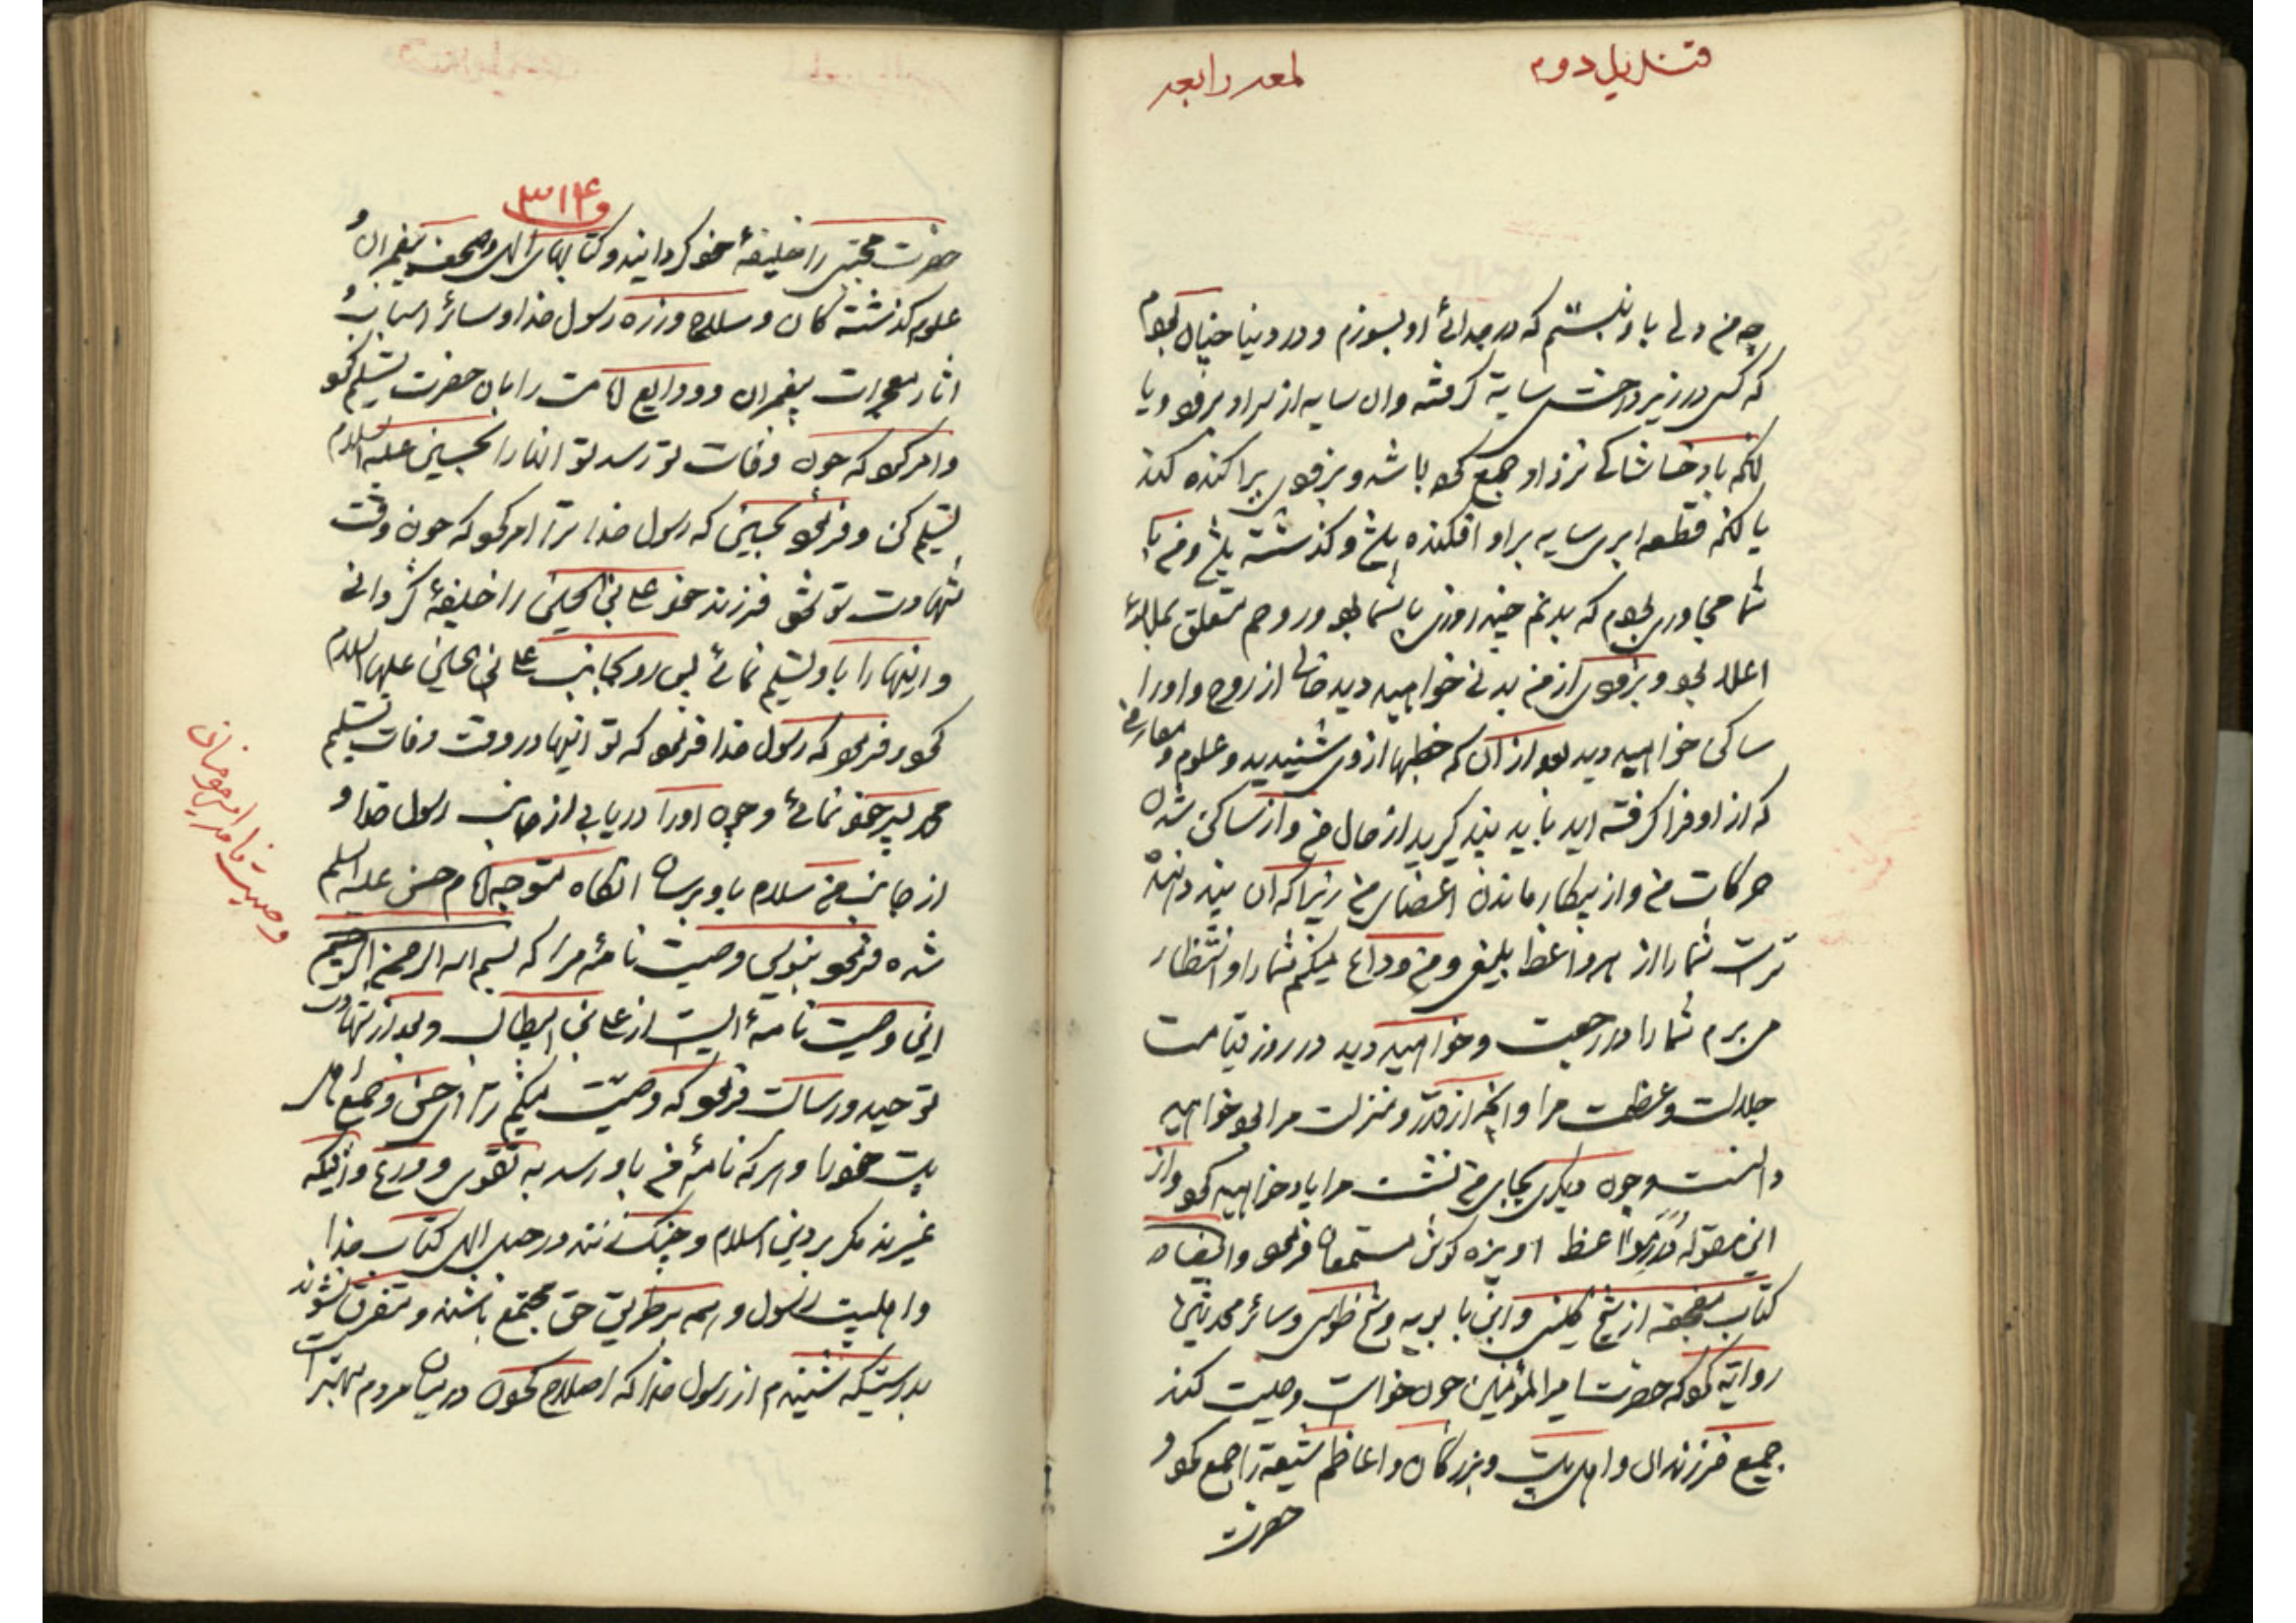 قندیل دوم
لمعه رابعه
چه من دلی باو نبستم که در جدائی او بسوزم و در دنیا چنان بودم
که کسی در زیر درخت سایه گرفته وان سایه از سر او برود و یا
بادخاشاکی نزد او جمع کرده باشد و بزودی پراکنده کند
یا قطعه ابری سایه بر او افکنده باشد و گذشته باشد و من با
شما مجاوری بودم که بدنم چند روزی با شما بود و روحم متعلق بملاء
اعلا بود و بزودی از من بدنی خواهید دید خالی از روح و او را
ساکن خواهید دید بعد از آن که خطبها از وی شنیدید و علوم و معارفی
که از او فرا گرفته اید باید پند گیرید از حال من و از ساکن شدن
حرکات من و از بیکار ماندن اعضای من زیرا که آن پند دهنده
تر است شما را از هر واعظ بلیغی و من وداع میکنم شما را و انتظار
می برم شما را در رجعت و خواهید دید در روز قیامت
جلالت و عظمت مرا و انچه از قدر و منزلت مرا بود خواهید
دانست و چون دیگری بجای من نشست مرا یاد خواهید کرد و از
این مقوله مواعظ اویزه گوش مستمعان فرمود و ایضا در
کتاب از شیخ کلینی و ابن بابویه و شیخ طوسی و سائر محدثین
روایه کرده که حضرت امیر المؤمنین چون خواست وصیت کند
جمیع فرزندان و اهل بیت و بزرگان و اعاظم شیعه را جمع کرد و
حضرت
و ۳۱۴
حضرت مجتبی را خلیفهٔ خود گردانید و کتابهای الهی و صحف پیغمبران و
علوم گذشته گان و سلاح و زره رسول خدا و سائر اسباب و
اثار معجزات پیغمبران و ودایع امامت را بان حضرت تسلیم کرد
و امر کرد که چون وفات تو رسد تو انها را بحسین علیه السلام
تسلیم کن و فرمود بحسین که رسول خدا ترا امر کرد که چون وقت
شهادت تو شود فرزند خود علی بن الحسین را خلیفه گردانی
و اینها را باو تسلیم نمائی پس رو بجانب علی بن الحسین علیهما السلام
کرد و فرمود که رسول خدا فرمود که تو اینها در وقت وفات تسلیم
محمد پسر خود نمائی و چون او را دریابی از جانب رسول خدا و
از جانب من سلام باو برسان انگاه متوجه امام حسن علیه السلام
شده فرمود بنویس وصیت نامهٔ مرا که بسم الله الرحمن الرحیم
این وصیت نامهٔ ایست از علی بن ابیطالب و بعد از شهادت
توحید و رسالت فرمود که وصیت میکنم ترا ای حسن و جمیع اهل
بیت خود را و هر که نامهٔ من باو رسد به تقوی و ورع و اینکه
نمیرند مگر بر دین اسلام و چنگ زنند در حبل الهی کتاب خدا
و اهلبیت رسول و همه بر طریق حق مجتمع باشند و متفرق نشوند
بدرستیکه شنیدم از رسول خدا که اصلاح کردن در میان مردم بهتر است
وصیت نامه امیر مومنان